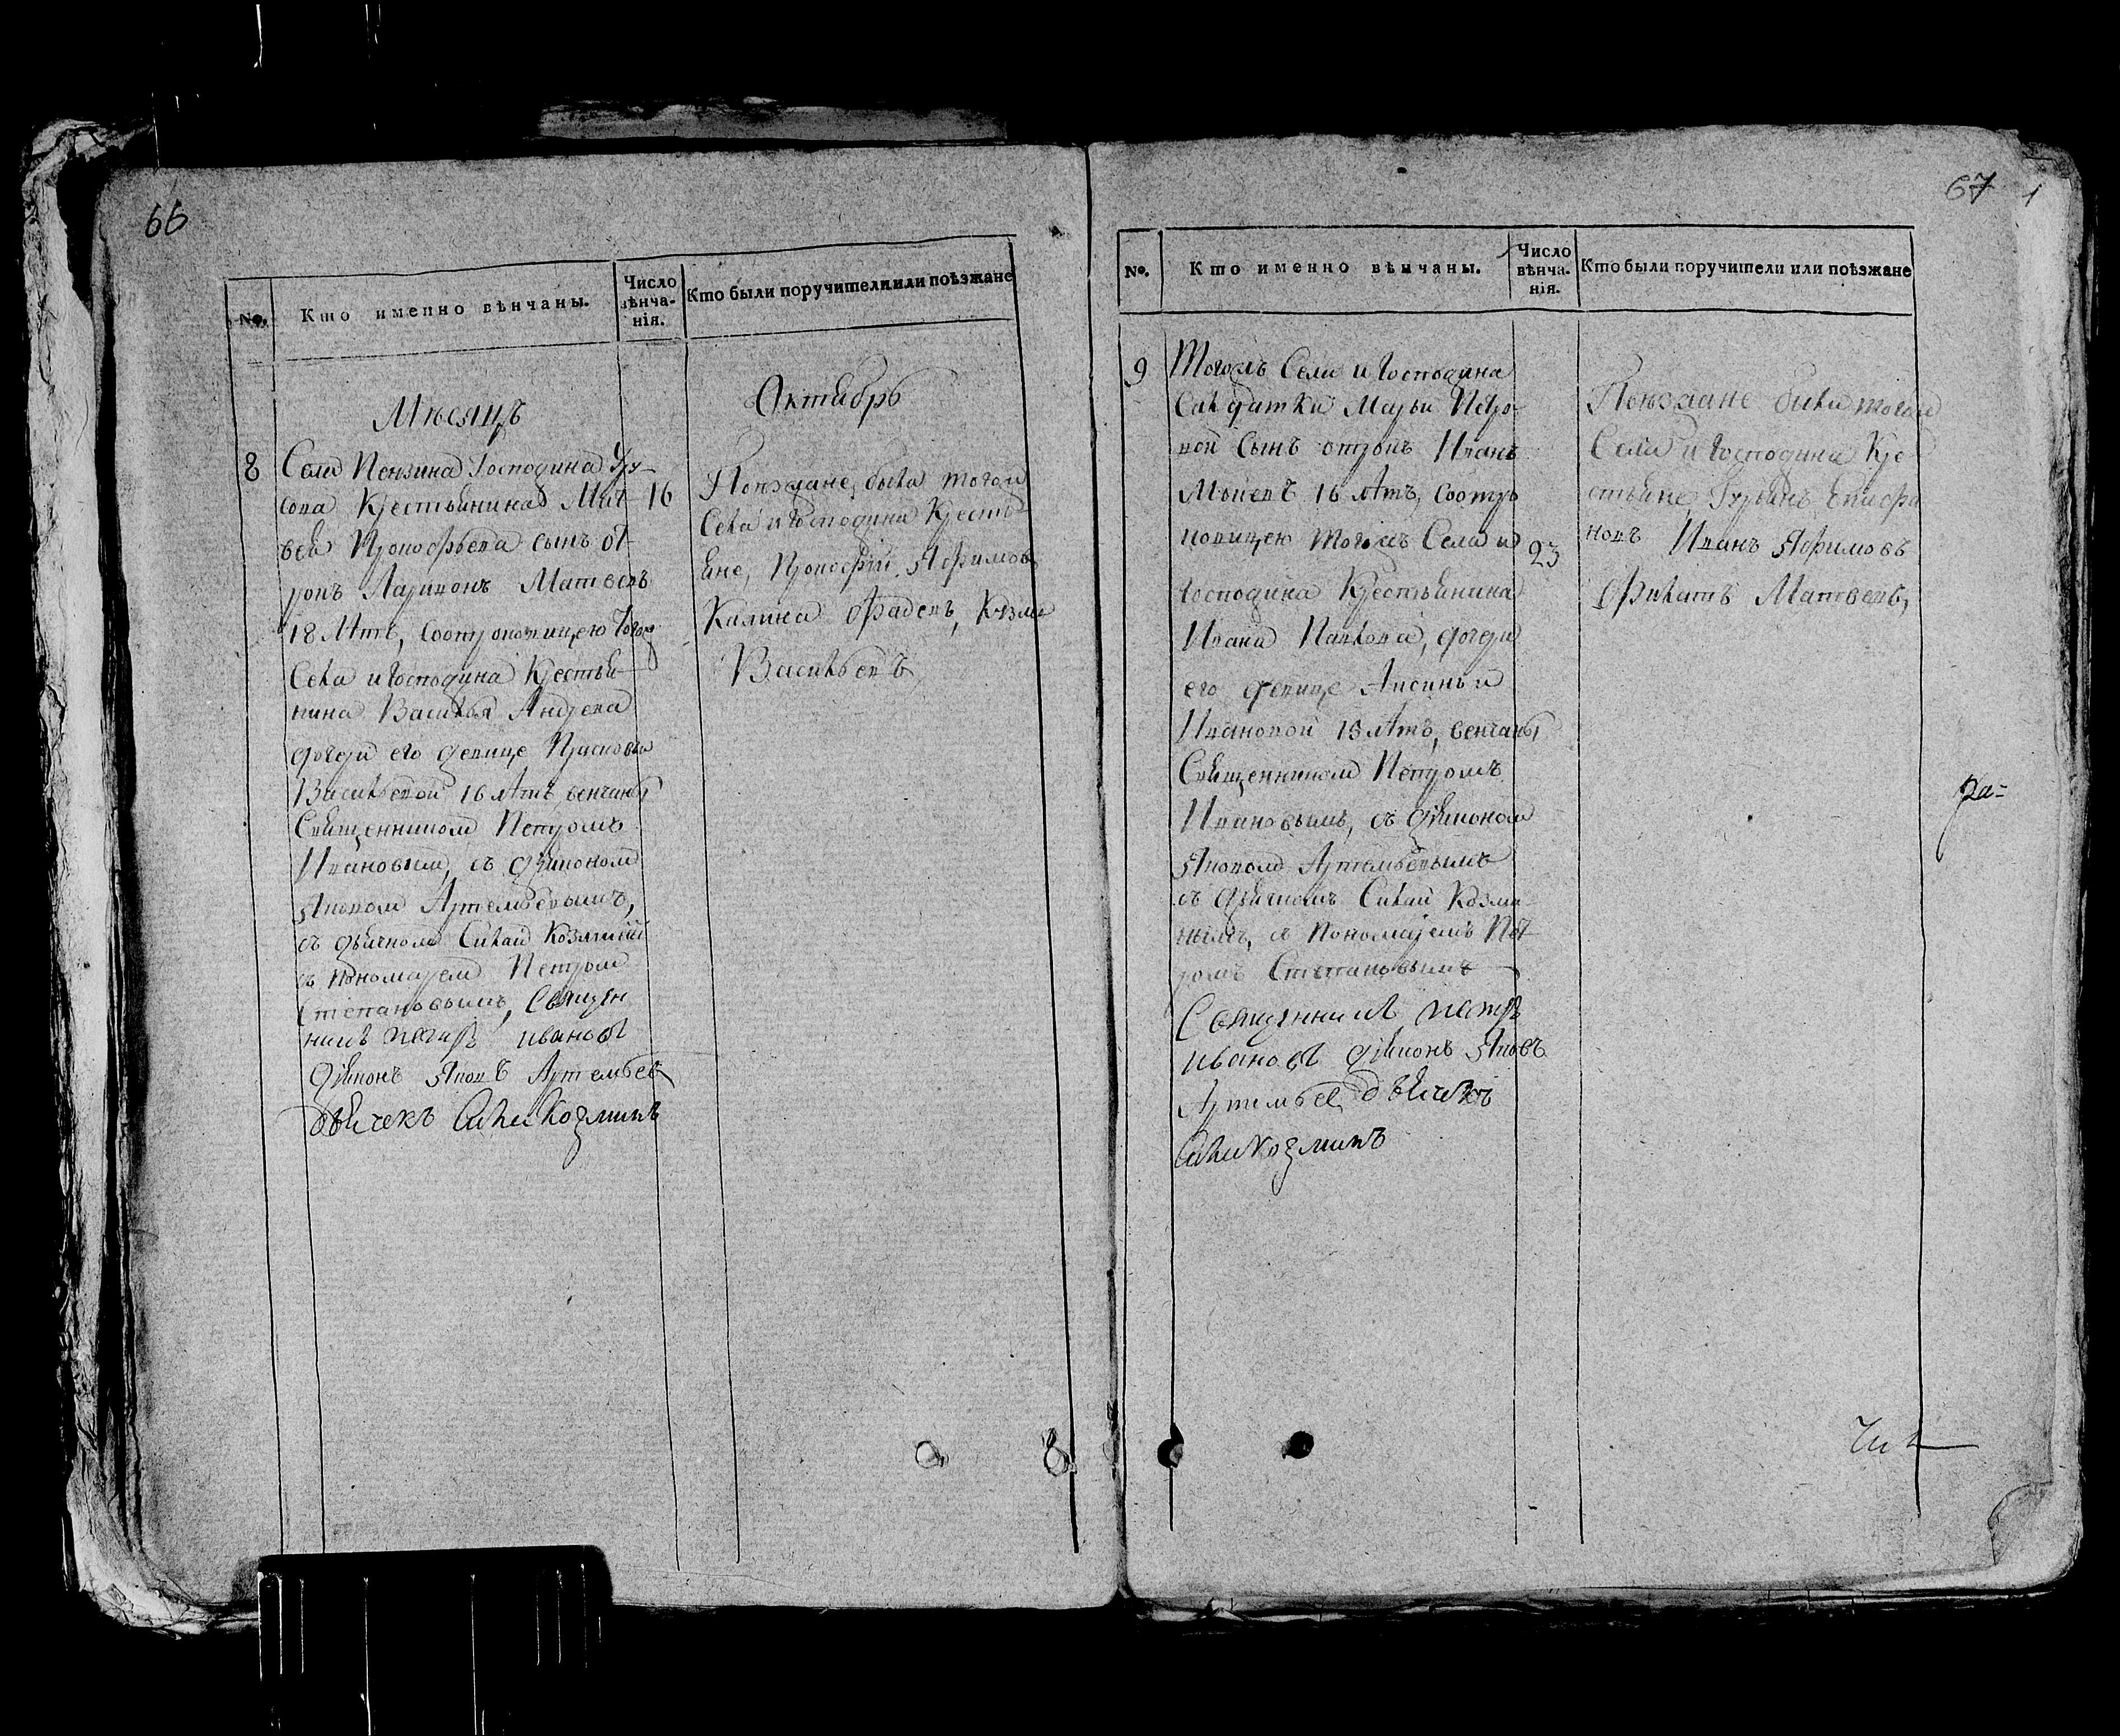 66
No.
Кто именно вѣнчаны.
Число вѣнча-
нія.
Кто были поручители или поѣзжане
Мѣсяцъ
Октябрь
8
Села Пензина Господина
сова Крестьянина Мат-
16
вея Прокофьева сынъ от-
рокъ Ларионъ Матвевъ
18 летъ, сотроковицею тогож
Села и Господина Крестья-
нина Василья Андрева
дочери его девице Прасковьи
Васильевой 16 летъ венчаны
Священником Петромъ
Ивановым, съ дьяконом
Яковом Артемьевымъ,
съ дьячком Силай Козминым
съ пономарем Петром
Степановымъ, Священ
никъ Петръ Ивановъ
Дьяконъ Яковъ Артемьев
дьячекъ Сила Козминъ
Поезжане, были тогож
Села и Господина Кресть
яне, Прокофий Яфимов
Калина Фадевъ, Козма
Васильевъ
67
1
No.
Кто именно вѣнчаны.
Число
вѣнча-
нія.
Кто были поручители или поѣзжане
9
Тогожъ Села и Господина
Салдатки Марьи Петро-
вой Сынъ отрокъ Иванъ
16 летъ, сотро
ковицею тогожъ Села и
23
Господина Крестьянина
Ивана Павлова, дочери
его девице Аксиньи
Ивановой 18 летъ, венчаны
Священником Петромъ
Ивановымъ, съ дьяконом
Яковом Артемьевымъ
съ дьячкомъ Силай Козми-
нымъ, съ Пономаремъ Пет-
ромъ Степановымъ
Священникъ Петръ
Ивановъ дьяконъ Яковъ
Артемьев дьячекъ
Сила Козминъ
Поезжане были тогож
Села и Господина Кре
стьяне, Епифа
новъ Иванъ Яфимовъ
Филатъ Матвевъ,
ра-